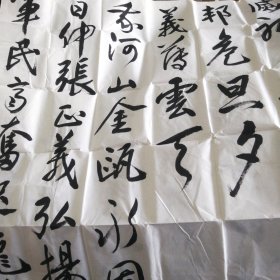 邦危旦夕
義薄雲天
河山金甌永固
日伸張正義弘揚
軍民高奮